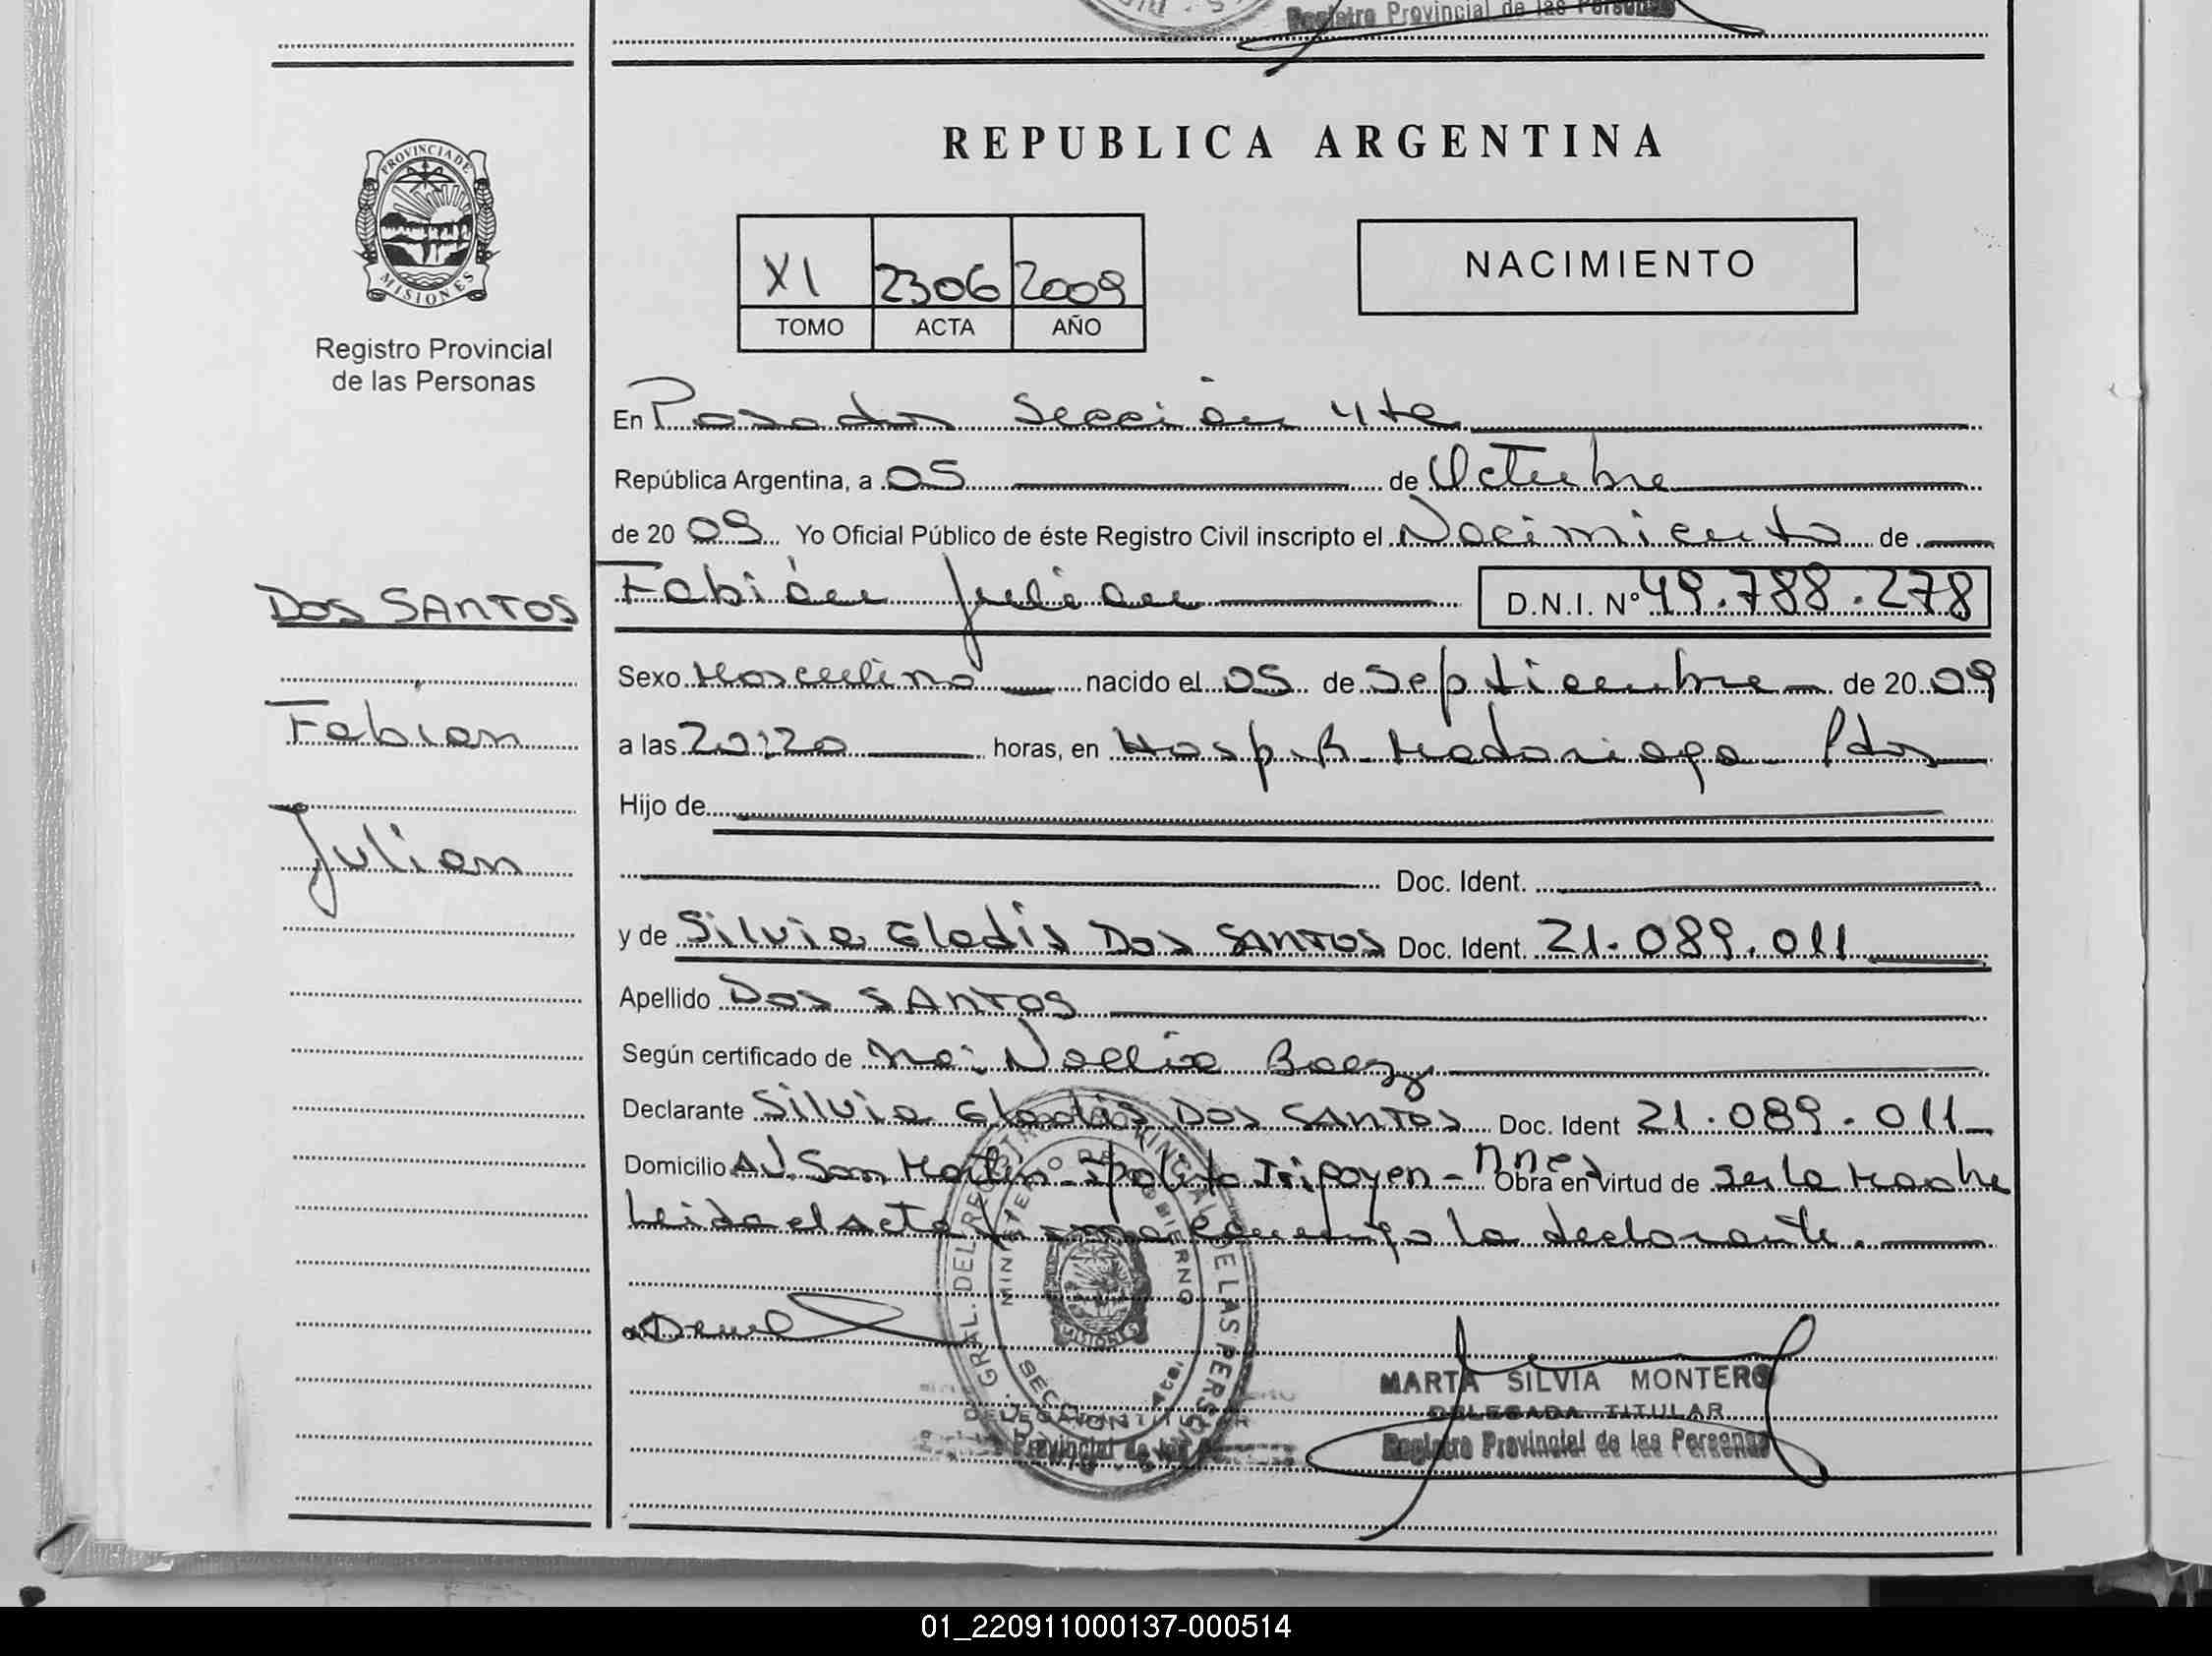 Registro Provincial de las Personas
REPUBLICA ARGENTINA
PROVINCIA DE
MISIONES
XI 2306 2009
TOMO ACTA AÑO
NACIMIENTO
Registro Provincial
de las Personas
En Posadas Sección 4ta
República Argentina, a 05 de Octubre
de 20 09 Yo Oficial Público de éste Registro Civil inscripto el Nacimiento de
DOS SANTOS
Fabián Julian D.N.I. Nº 49.788.278
Sexo Masculino nacido el 05 de Septiembre de 20 09
Fabian
a las 20:20 horas, en Hosp. R. Madariaga Pdas
Hijo de
Julian
Doc. Ident.
y de Silvia Gladis Dos SANTOS Doc. Ident. 21.089.011
Apellido Dos SANTOS
Según certificado de Noelia Baez
Declarante Silvia Gladis Dos SANTOS Doc. Ident 21.089.011
Domicilio Av. San Martin - Ipolito Irigoyen - Obra en virtud de ser la Madre
Leida el Acta firma conmigo la declarante.
GRAL. DEL REGISTRO PROVINCIAL DE LAS PERSONAS
MINISTERIO DE GOBIERNO
MISIONES
SECCION 4ta.
MARTA SILVIA MONTERO
DELEGADA TITULAR
Registro Provincial de las Personas
DELEGADA TITULAR
Provincial de las
01_220911000137-000514